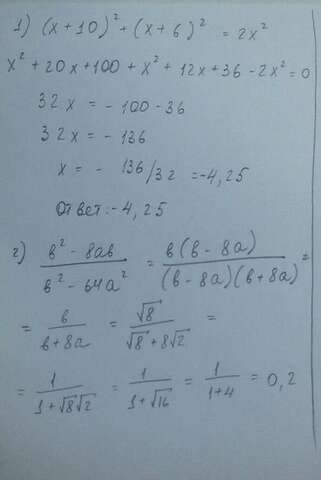 1) (x+10)² + (x+6)² = 2x²
x² + 20x + 100 + x² + 12x + 36 - 2x² = 0
32x = -100 - 36
32x = -136
x = - 136/32 = -4,25
Ответ: -4,25
2) (в² - 8ав)/(в² - 64а²) = в(в - 8а)/((в - 8а)(в + 8а)) =
= в/(в + 8а) = √8/(√8 + 8√2) =
= 1/(1 + √8√2) = 1/(1 + √16) = 1/(1 + 4) = 0,2